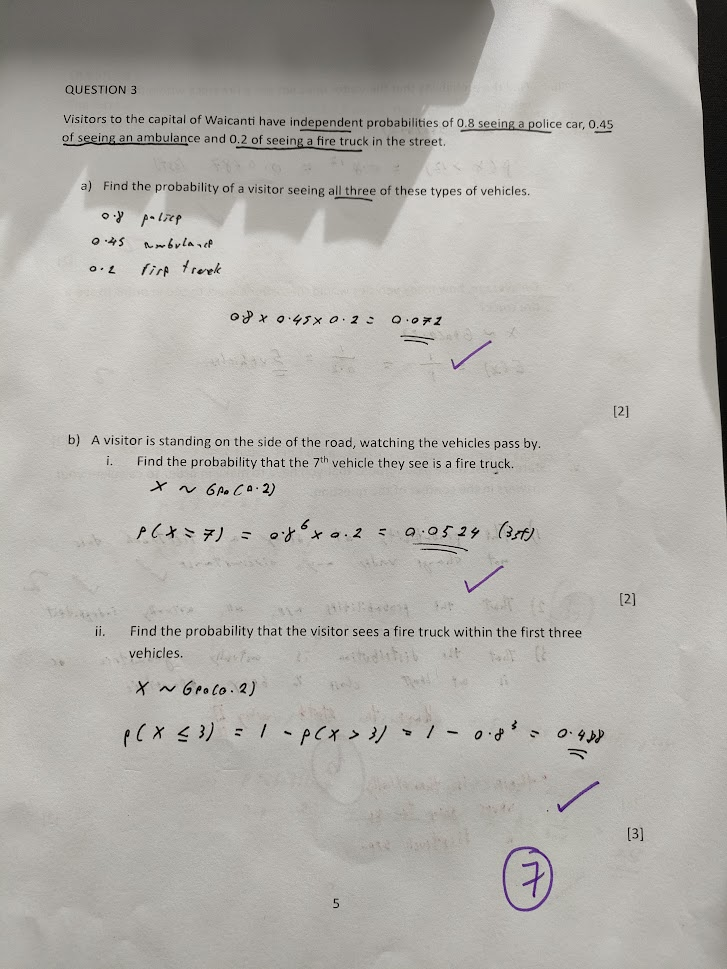 QUESTION 3
Visitors to the capital of Waicanti have independent probabilities of 0.8 seeing a police car, 0.45
of seeing an ambulance and 0.2 of seeing a fire truck in the street.
a) Find the probability of a visitor seeing all three of these types of vehicles.
0.8 police
0.45 ambulance
0.2 fire truck
0.8 x 0.45 x 0.2 = 0.072
[2]
b) A visitor is standing on the side of the road, watching the vehicles pass by.
i. Find the probability that the 7th vehicle they see is a fire truck.
X ~ Geo (0.2)
P(X = 7) = 0.8^6 x 0.2 = 0.0524 (3sf)
[2]
ii. Find the probability that the visitor sees a fire truck within the first three
vehicles.
X ~ Geo(0.2)
P(X ≤ 3) = 1 - P(X > 3) = 1 - 0.8^3 = 0.488
[3]
7
5